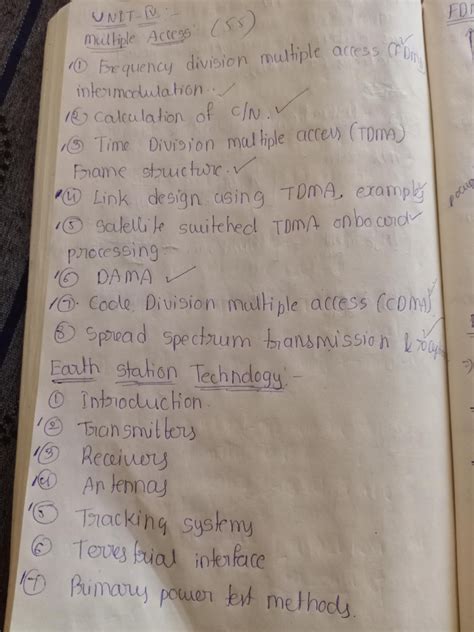 UNIT-IV :-
Multiple Access (55)
① Frequency division multiple access (FDMA)
intermodulation. ✓
② Calculation of C/N. ✓
③ Time Division multiple access (TDMA)
Frame structure. ✓
④ Link design using TDMA, examples
⑤ Satellite switched TDMA onboard
processing
⑥ DAMA ✓
⑦ Code Division multiple access (CDMA)
⑧ Spread spectrum transmission &
Earth Station Technology :-
① Introduction.
② Transmitters
③ Receivers
④ Antennas
⑤ Tracking systems
⑥ Terrestrial interface
⑦ Primary power test methods.